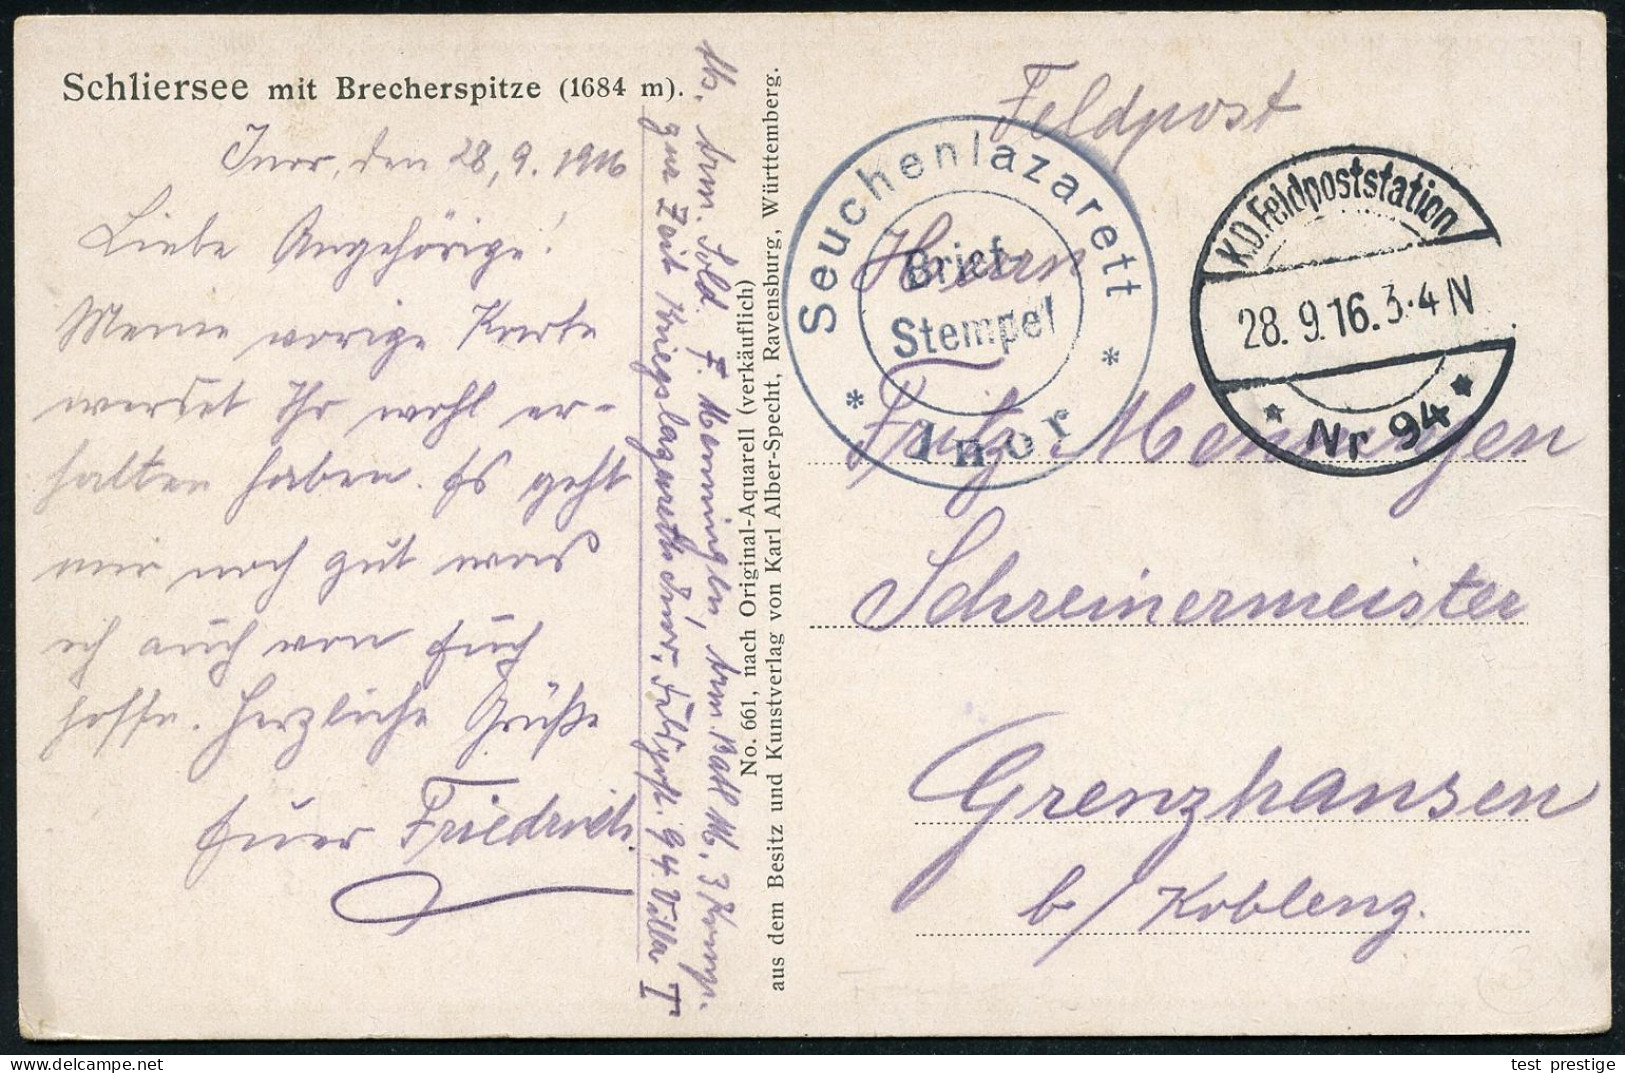 Schliersee mit Brecherspitze (1684 m).
Inor, den 28, 9. 1916
Liebe Angehörige!
Meine vorige Karte
werdet Ihr wohl er-
halten haben. Es geht
mir noch gut was
ich auch von Euch
hoffe. Herzliche Grüße
Euer Friedrich.
Abs. Arm. Sold. F. Arm. Batl. 3 Komp.
zur Zeit Kriegslazarett Inor, Feldpost. 94. Villa I
No. 661, nach Original-Aquarell (verkäuflich)
aus dem Besitz und Kunstverlag von Karl Alber-Specht, Ravensburg, Württemberg.
Feldpost
Seuchenlazarett
Brief-
Stempel
* Inor *
K.D.Feldpoststation
28. 9. 16. 3-4 N
* Nr 94 *
Herrn
Fritz Menningen
Schreinermeister
Grenzhausen
b/ Koblenz.
delcampe.net
test_prestige